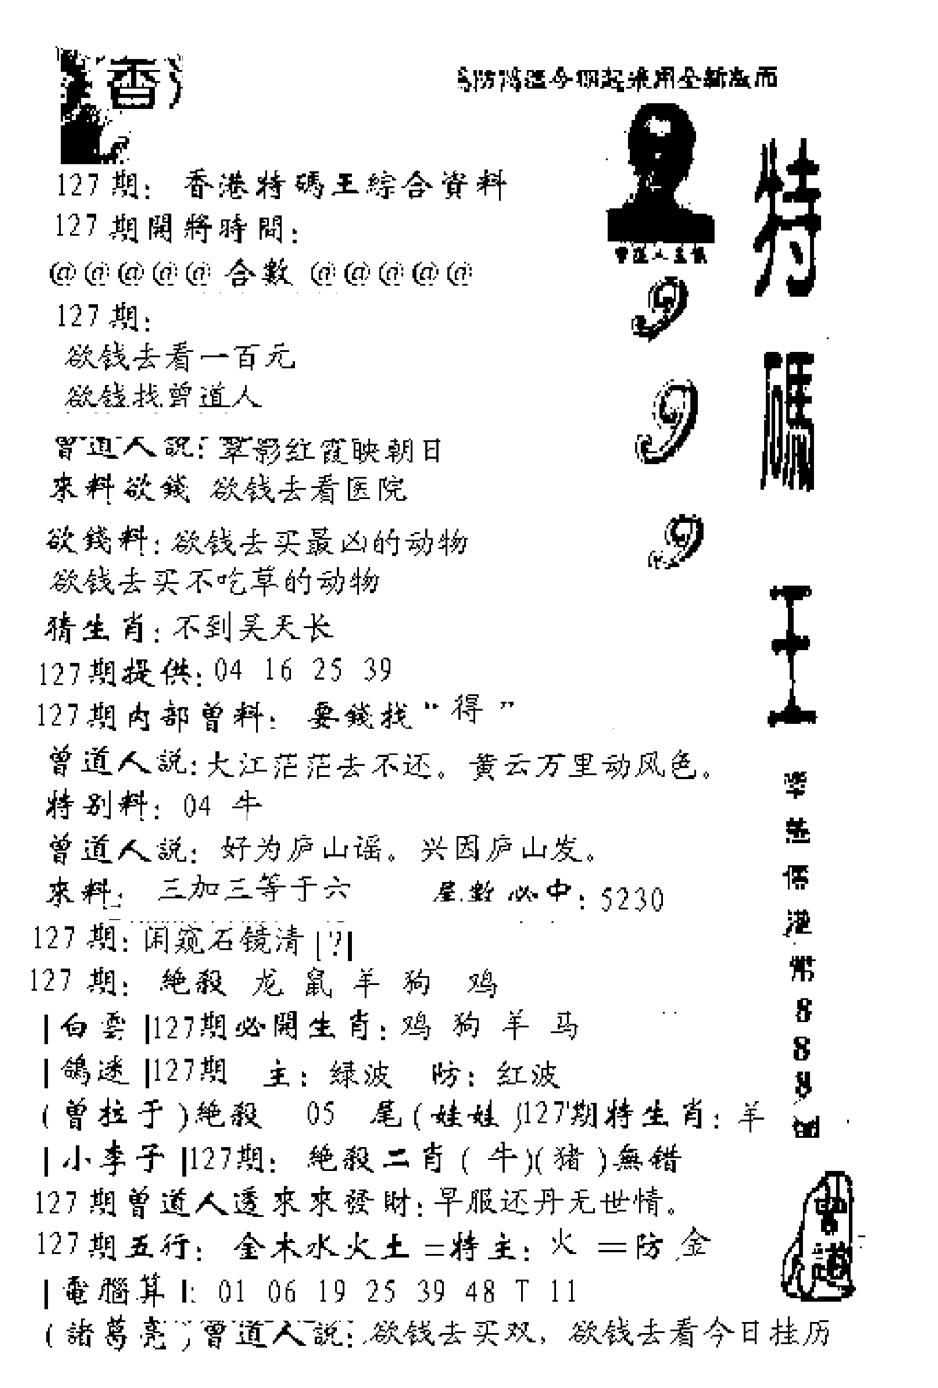 香
127期：香港特碼王綜合資料
127期開將時間：
@@@@@合數@@@@@
127期：
欲钱去看一百元
欲钱找曾道人
曾道人説：翠影红霞映朝日
來料欲錢 欲钱去看医院
欲錢料：欲钱去买最凶的动物
欲钱去买不吃草的动物
猜生肖：不到吴天长
127期提供：04 16 25 39
127期内部曾料：要錢找“得”
曾道人説：大江茫茫去不还。黄云万里动风色。
特别料：04 牛
曾道人説：好为庐山谣。兴因庐山发。
來料：三加三等于六 尾數必中：5230
127期：闲窥石镜清|?|
127期：絶殺 龙 鼠 羊 狗 鸡
|白雲|127期必開生肖：鸡 狗 羊 马
|鴿迷|127期 主：绿波 防：红波
(曾拉于)絶殺 05 尾(娃娃)127期特生肖：羊
|小李子|127期：絶殺二肖(牛)(猪)無錯
127期曾道人透來來發財：早服还丹无世情。
127期五行：金木水火土=特主：火 =防 金
|電腦算|：01 06 19 25 39 48 T 11
(諸葛亮)曾道人説：欲钱去买双，欲钱去看今日挂历
曾道人
9
9
9
特
碼
王
港
幣
8
8
8
曾道